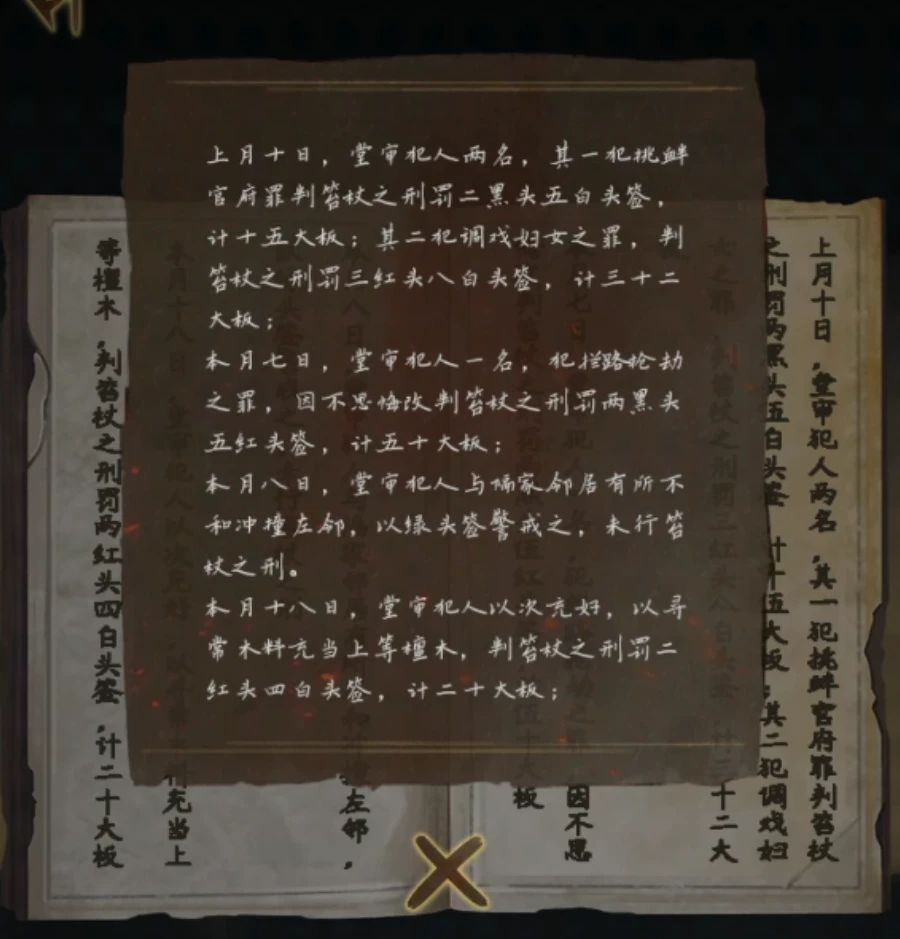 上月十日，堂审犯人两名，其一犯挑衅
官府罪判笞杖之刑罚二黑头五白头签，
计十五大板；其二犯调戏妇女之罪，判
笞杖之刑罚三红头八白头签，计三十二
大板；
本月七日，堂审犯人一名，犯拦路抢劫
之罪，因不思悔改判笞杖之刑罚两黑头
五红头签，计五十大板；
本月八日，堂审犯人与隔家邻居有所不
和冲撞左邻，以绿头签警戒之，未行笞
杖之刑。
本月十八日，堂审犯人以次充好，以寻
常木料充当上等檀木，判笞杖之刑罚二
红头四白头签，计二十大板；
上月十日，堂审犯人两名，其一犯挑衅官府罪判笞杖
之刑罚两黑头五白头签，计十五大板；其二犯调戏妇
等檀木，判笞杖之刑罚两红头四白头签，计二十大板